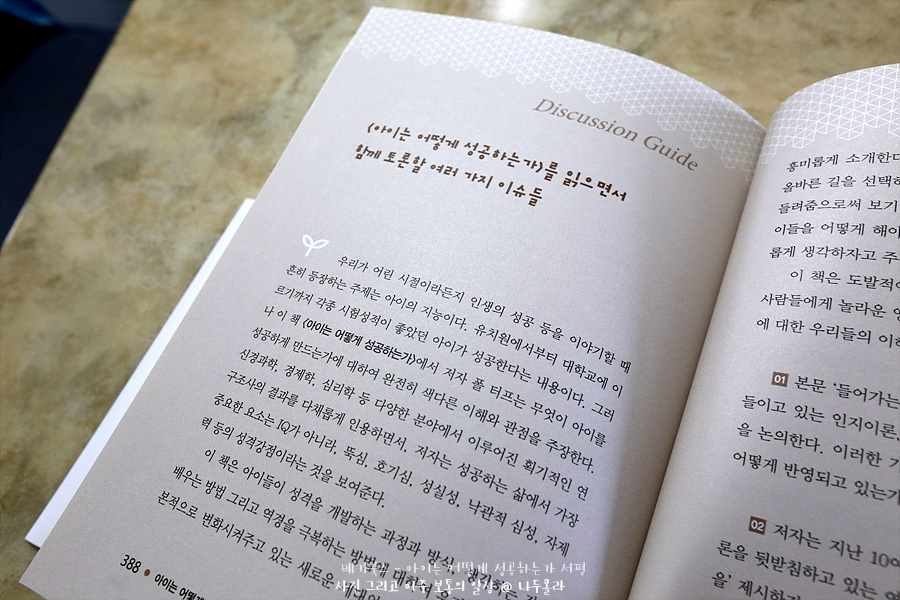 Discussion Guide
〈아이는 어떻게 성공하는가〉를 읽으면서
함께 토론할 여러 가지 이슈들
우리가 어린 시절이라든지 인생의 성공 등을 이야기할 때
흔히 등장하는 주제는 아이의 지능이다. 유치원에서부터 대학교에 이
르기까지 각종 시험성적이 좋았던 아이가 성공한다는 내용이다. 그러
나 이 책 〈아이는 어떻게 성공하는가〉에서 저자 폴 터프는 무엇이 아이를
성공하게 만드는가에 대하여 완전히 색다른 이해와 관점을 주장한다.
신경과학, 경제학, 심리학 등 다양한 분야에서 이루어진 획기적인 연
구조사의 결과를 다채롭게 인용하면서, 저자는 성공하는 삶에서 가장
중요한 요소는 IQ가 아니라, 뚝심, 호기심, 성실성, 낙관적 심성, 자제
력 등의 성격강점이라는 것을 보여준다.
이 책은 아이들이 성격을 개발하는 과정과 방식, 생각하는
배우는 방법 그리고 역경을 극복하는 방법에 대하여
본적으로 변화시켜주고 있는 새로운
388 ● 아이는 어떻게
흥미롭게 소개한다
올바른 길을 선택하
들려줌으로써 보기
이들을 어떻게 해야
롭게 생각하자고 주
이 책은 도발적이
사람들에게 놀라운 영
에 대한 우리들의 이해
01 본문 '들어가는
들이고 있는 인지이론,
을 논의한다. 이러한 가
어떻게 반영되고 있는가
02 저자는 지난 10여
론을 뒷받침하고 있는 여
을' 제시하
베가본드 - 아이는 어떻게 성공하는가 서평
사진 그리고 아주 보통의 일상 @ 나두콜라